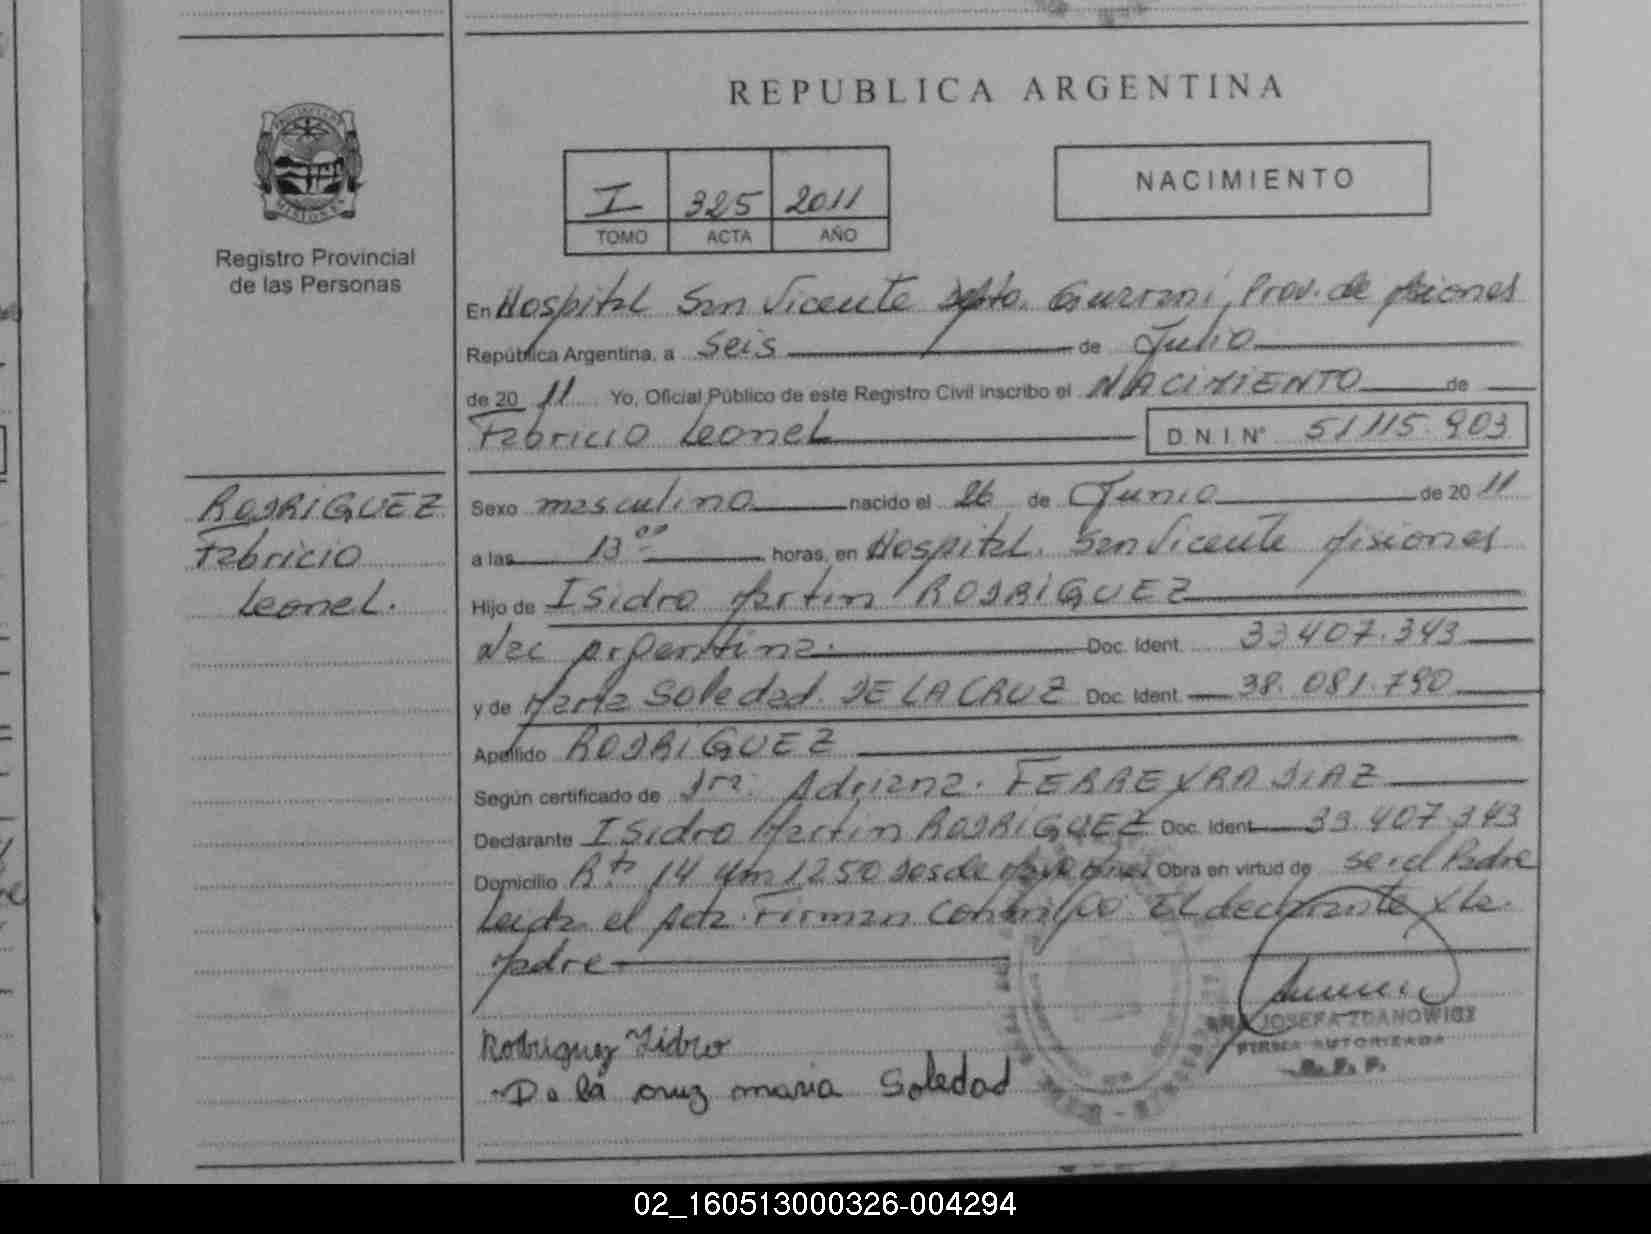 REPUBLICA ARGENTINA
PROVINCIA DE
MISIONES
Registro Provincial
de las Personas
I 325 2011
TOMO ACTA AÑO
NACIMIENTO
En Hospital San Vicente Dpto. Guarani, Prov. de Misiones
República Argentina, a Seis de Julio
de 20 11 Yo, Oficial Público de este Registro Civil inscribo el NACIMIENTO de
Fabricio Leonel D.N.I. Nº 51.115.903
RODRIGUEZ
Fabricio
Leonel.
Sexo masculino nacido el 26 de Junio de 20 11
a las 13 00 horas, en Hospital. San Vicente Misiones
Hijo de Isidro Martin RODRIGUEZ
Nac Argentina. Doc. Ident. 33.407.343
y de Maria Soledad. DE LA CRUZ Doc. Ident. 38.081.790
Apellido RODRIGUEZ
Según certificado de Dra. Adriana. FERREYRA DIAZ
Declarante Isidro Martin RODRIGUEZ Doc. Ident. 33.407.343
Domicilio Rta 14 Km 1250 Obra en virtud de ser el Padre
Leida el Acta. Firman Conmigo El declarante y la.
Madre
Rodriguez Isidro
De la cruz maria Soledad
JOSEFA ZDANOWICZ
FIRMA AUTORIZADA
R.P.P.
02_160513000326-004294